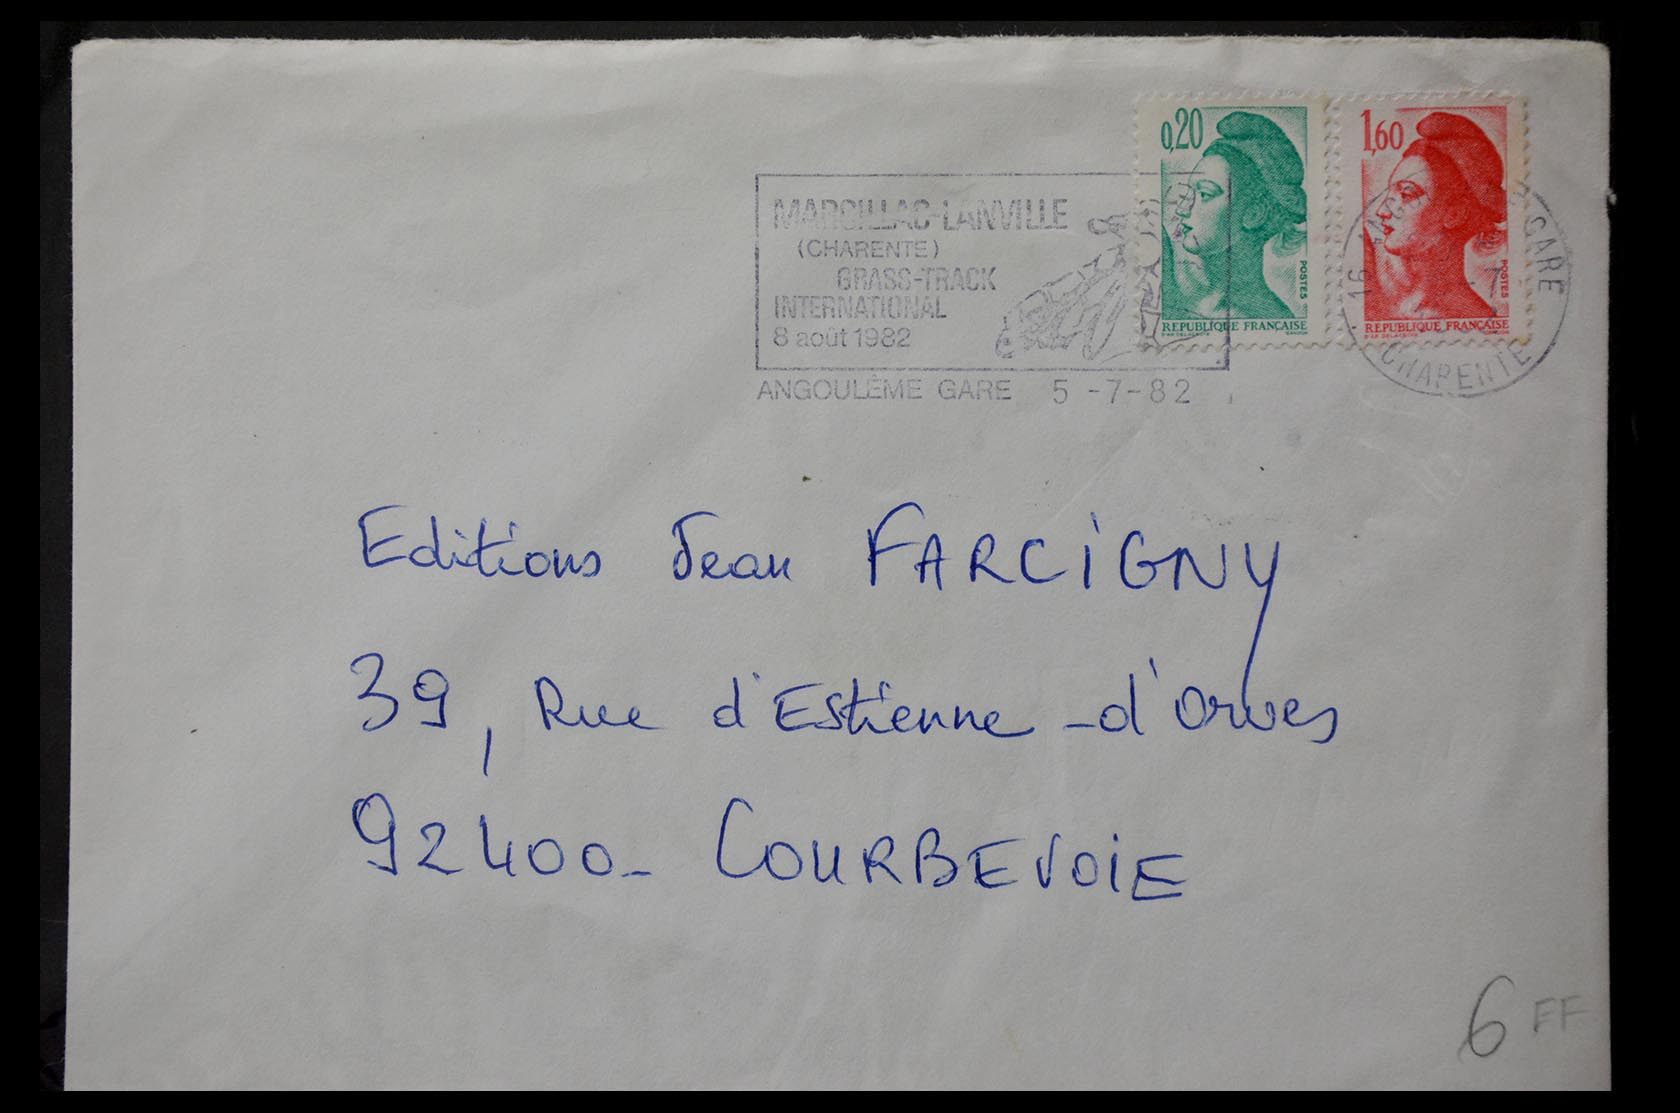 0,20
POSTES
REPUBLIQUE FRANÇAISE
1,60
POSTES
REPUBLIQUE FRANÇAISE
MARCILLAC-LANVILLE
(CHARENTE)
GRASS-TRACK
INTERNATIONAL
8 août 1982
ANGOULÊME GARE 5 -7-82
16 GARE
CHARENTE
Editions Jean FARCIGNY
39, Rue d'Estienne-d'Orves
92400_ COURBEVOIE
6 FF